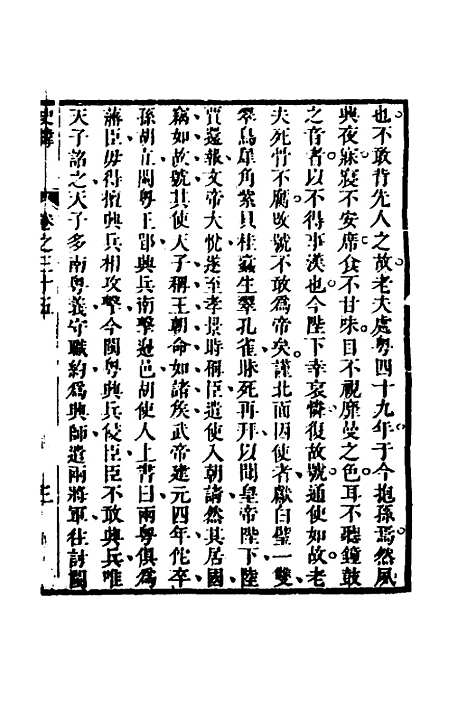 也不敢背先人之故老夫處粵四十九年于今抱孫焉然夙
興夜寐寢不安席食不甘味目不視靡曼之色耳不聽鐘鼓
之音者以不得事漢也今陛下幸哀憐復故號通使如故老
夫死骨不腐改號不敢爲帝矣謹北面因使者獻白璧一雙
翠鳥犀角紫貝桂蠹生翠孔雀昧死再拜以聞皇帝陛下陸
賈還報文帝大悅遂至孝景時稱臣遣使入朝請然其居國
竊如故號其使天子稱王朝命如諸侯武帝建元四年佗卒
孫胡立閩粵王郢興兵南擊邊邑胡使人上書曰兩粵俱爲
藩臣毋得擅興兵相攻擊今閩粵興兵侵臣臣不敢興兵唯
天子詔之天子多南粵義守職約爲興師遣兩將軍往討閩
卷之三十五